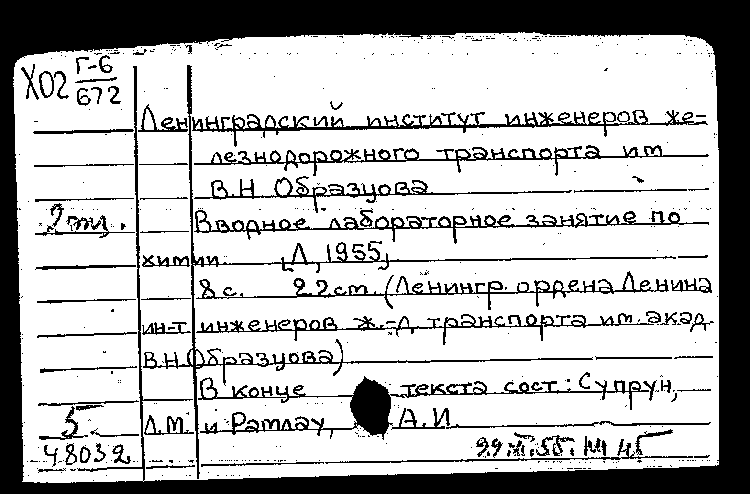 Х02 Г-6
672
Ленинградский институт инженеров же=
лезнодорожного транспорта им
В.Н. Образцова
2 экз. Вводное лабораторное занятие по
химии. [Л, 1955]
8 с. 22 см. (Ленингр. ордена Ленина
ин-т инженеров ж.-д. транспорта им. акад.
В.Н. Образцова)
В конце текста сост: Супрун,
5. Л.М. и Ратлау, А.И.
48032